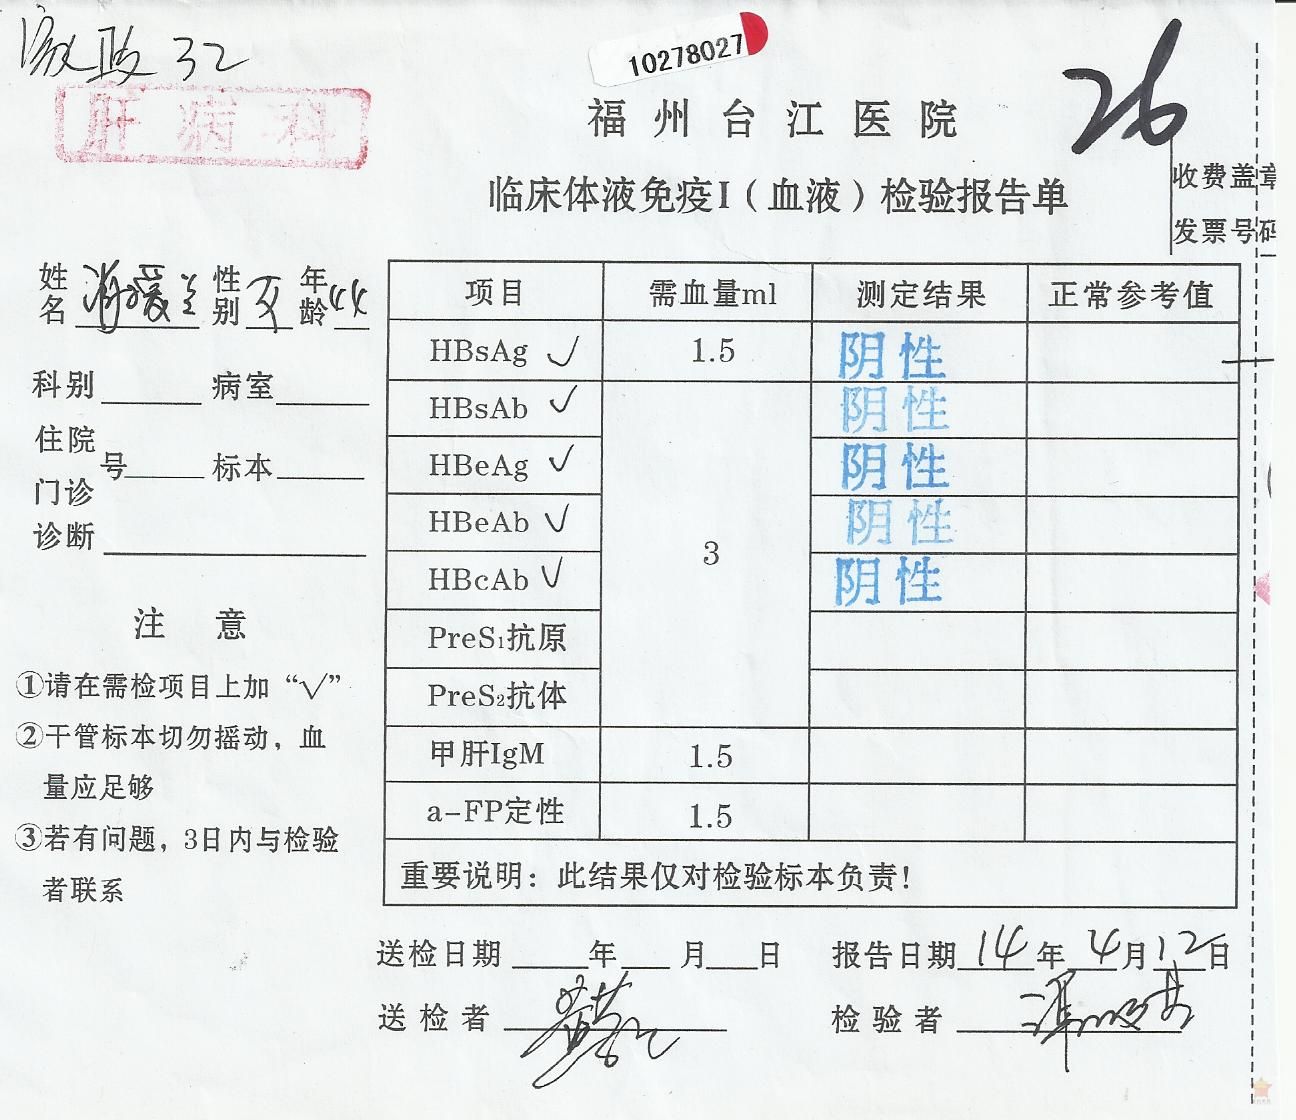 家政 32
10278027
26
肝病科
福州台江医院
临床体液免疫I（血液）检验报告单
收费盖章
发票号码
姓名 性别 女 年龄 44
科别 病室
住院
门诊
号 标本
诊断
注 意
①请在需检项目上加“√”
②干管标本切勿摇动，血
量应足够
③若有问题，3日内与检验
者联系
项目 需血量ml 测定结果 正常参考值
HBsAg √ 1.5 阴性
HBsAb √ 阴性
HBeAg √ 3 阴性
HBeAb √ 阴性
HBcAb √ 阴性
PreS₁抗原
PreS₂抗体
甲肝IgM 1.5
a-FP定性 1.5
重要说明：此结果仅对检验标本负责！
送检日期 年 月 日 报告日期 14 年 4 月 12 日
送检者 检验者